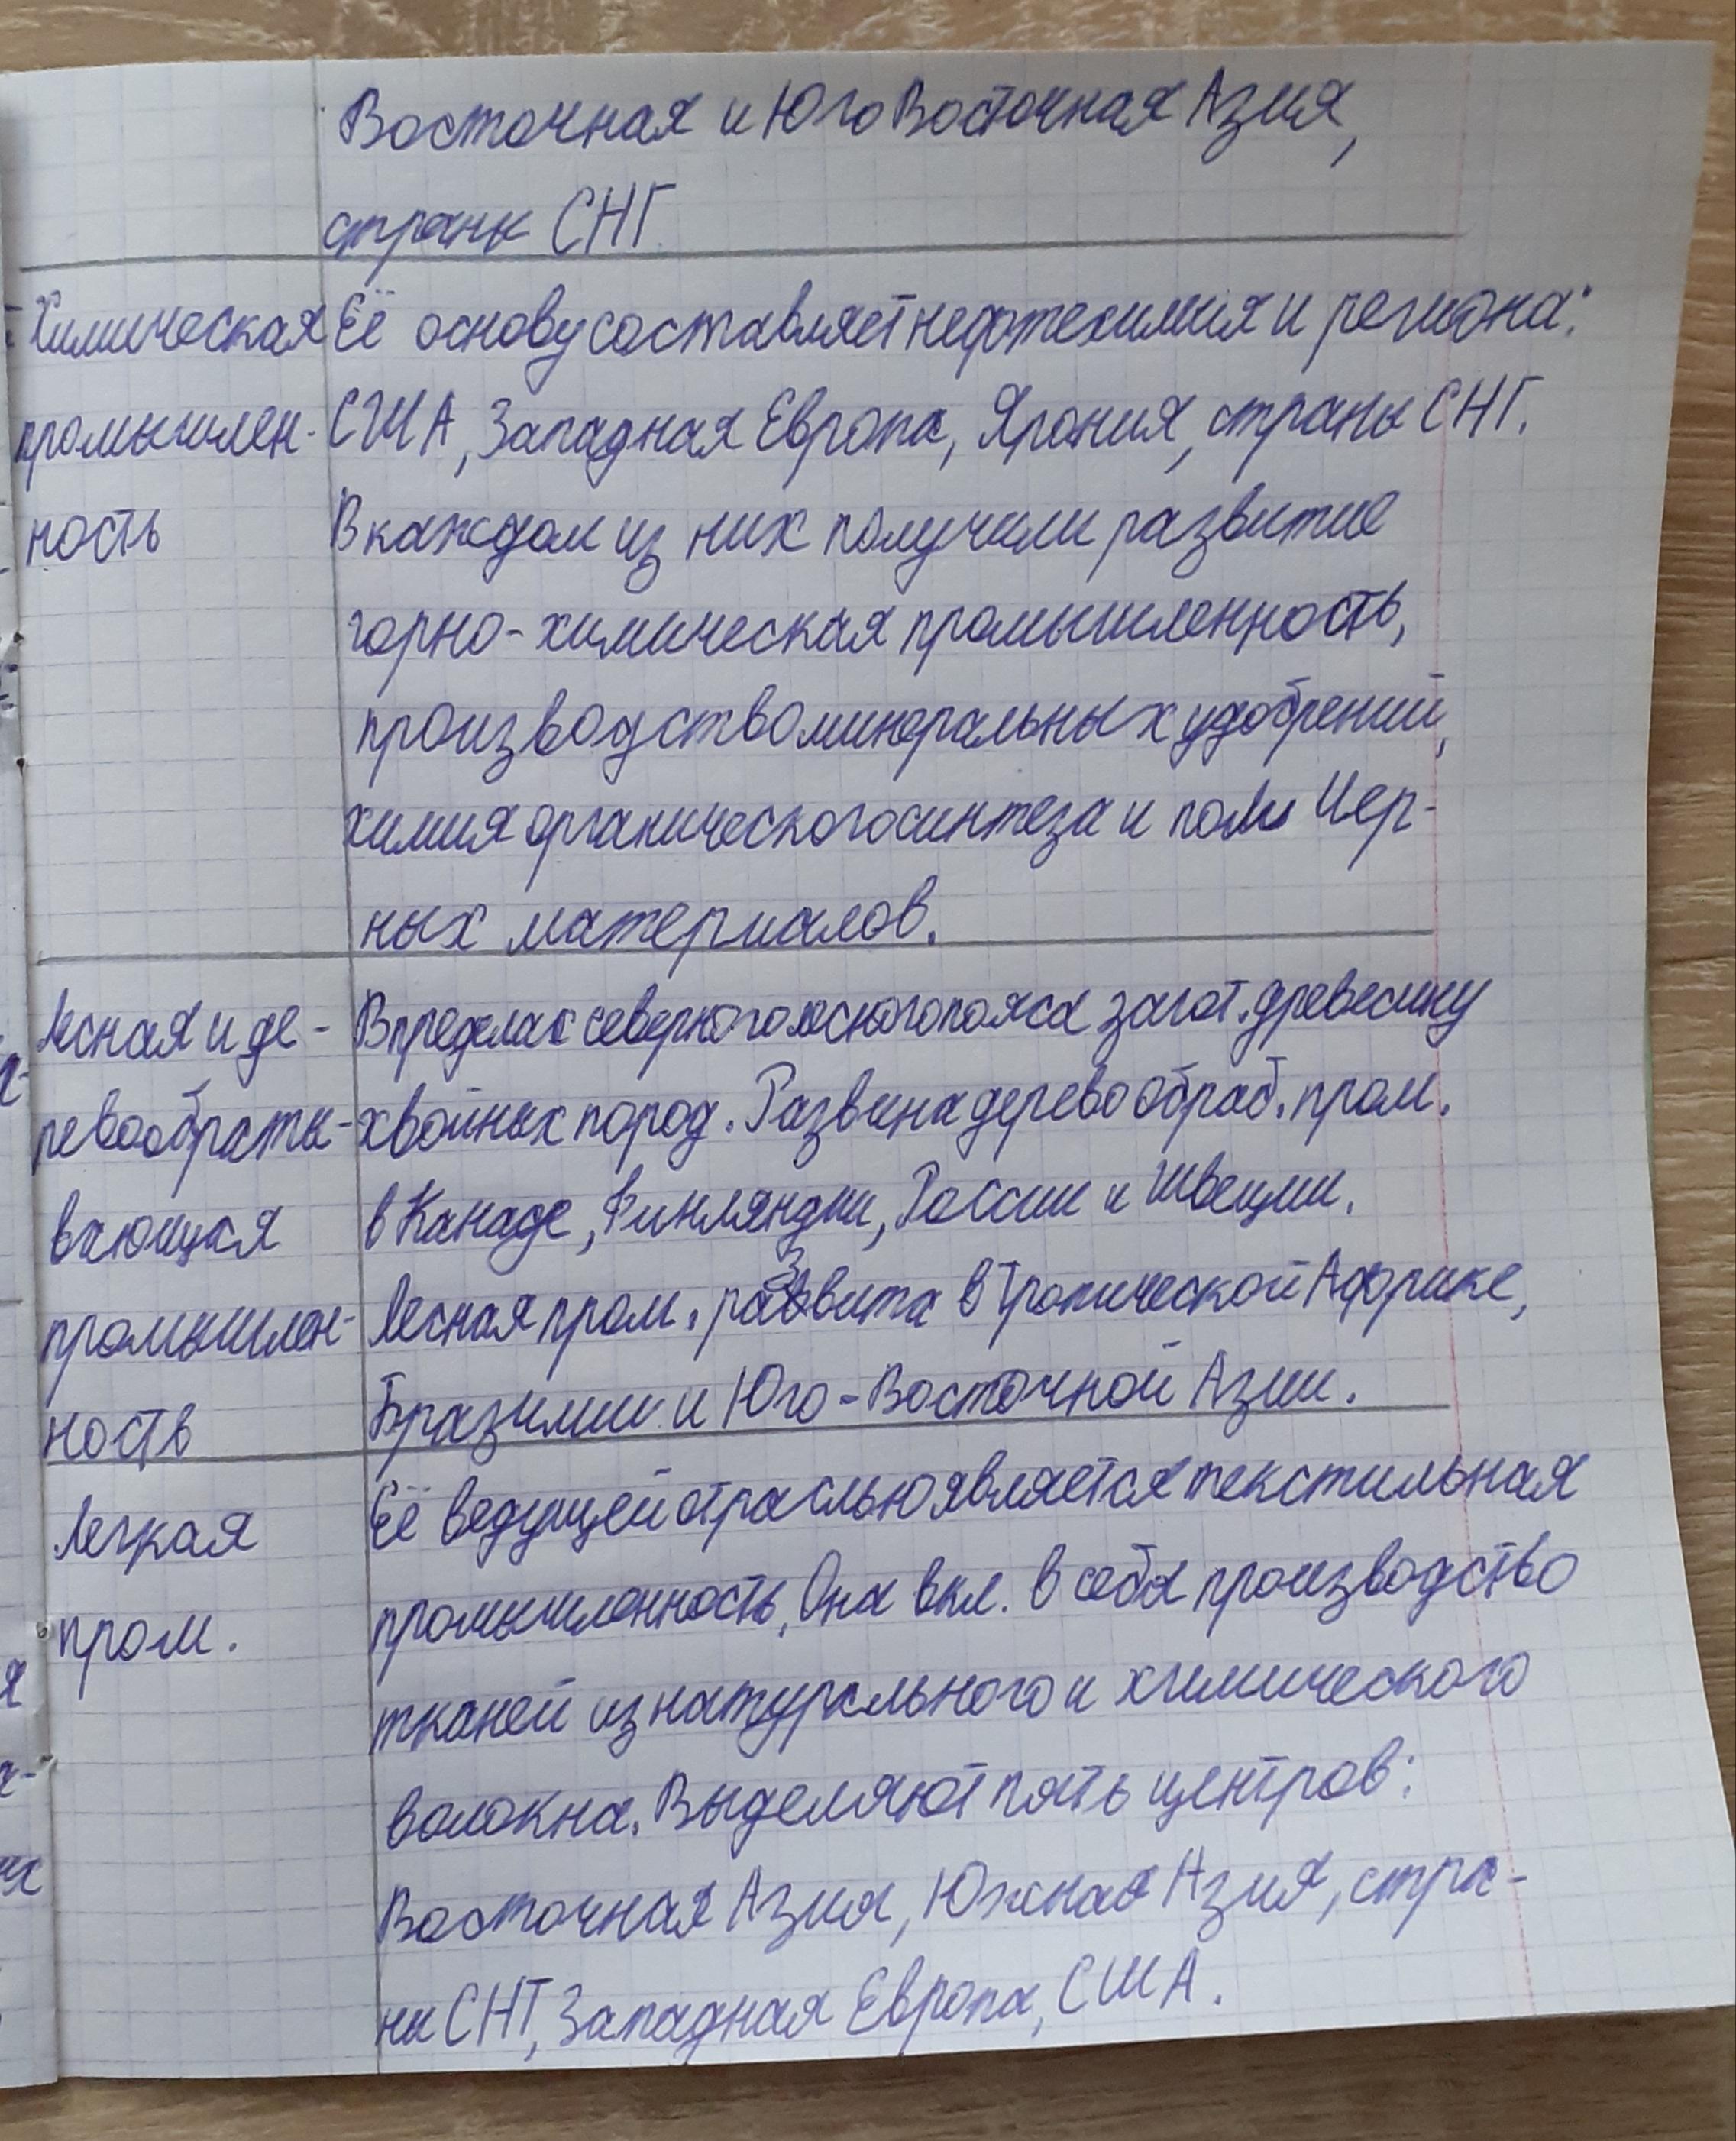 Восточная и Юго Восточная Азия,
страны СНГ.
Химическая Её основу составляет нефтехимия и региона:
промышлен- США, Западная Европа, Япония, страны СНГ.
ность В каждом из них получили развитие
горно-химическая промышленность,
производство минеральных удобрений,
химия органического синтеза и поли Мер-
ных материалов.
Лесная и де- В пределах северного лесного пояса загот. древесину
ревообраты- хвойных пород. Развина деревообраб. пром.
вающая в Канаде, Финляндии, России и Швеции.
промышлен- Лесная пром. развита в Тропической Африке,
ность Бразилии и Юго-Восточной Азии.
Легкая Её ведущей отраслью является текстильная
пром. промышленность. Она вкл. в себя производство
тканей из натурального и химического
волокна. Выделяют пять центров:
Восточная Азия, Южная Азия, стра-
ны СНГ, Западная Европа, США.